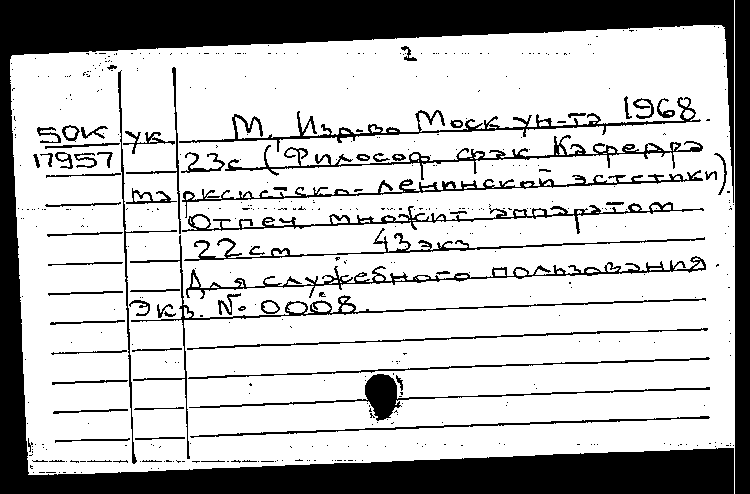 2
50К ук. М. Изд-во Моск ун-та, 1968.
17957 23с (Философ. фак Кафедра
марксистско-ленинской эстетики).
Отпеч. множит аппаратом
22 см 43 экз
Для служебного пользования.
Экз. № 0008.